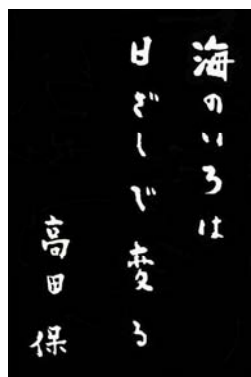 海のいろは
日ざしで変る
高田保